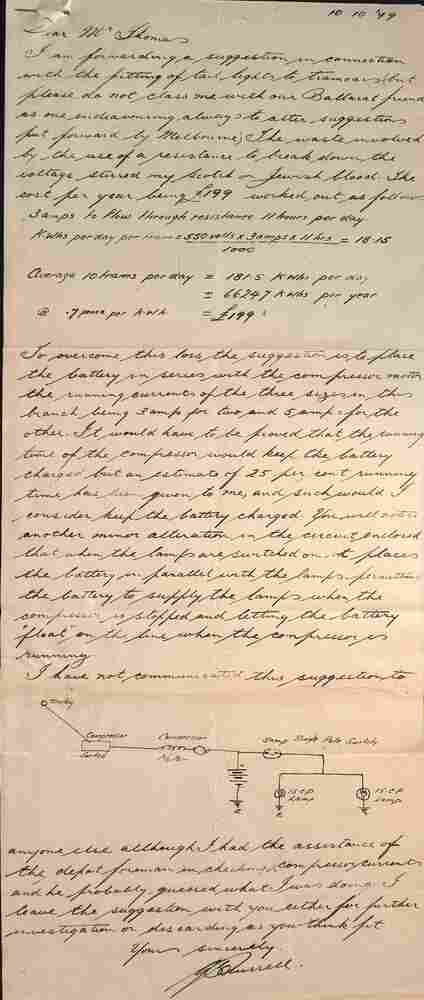 10 10 '49
Dear Mr Thomas
I am forwarding a suggestion in connection
with the fitting of tail lights to tramcars but
please do not class me with our Ballarat friend
as one endeavouring always to alter suggestions
put forward by Melbourne; The waste involved
by the use of a resistance to break down the
voltage stirred my Scotch or Jewish blood. The
cost per year being £199 worked out as follows
3 amps to flow through resistance 11 hours per day
KWhs per day per tram = 550 volts x 3 amps x 11 hrs = 18.15
1000
Average 10 trams per day = 181.5 KWhs per day
= 66247 KWhs per year
@ .7 pence per KWh = £199
To overcome this loss the suggestion is to place
the battery in series with the compressor motor
the running currents of the three sizes on this
branch being 3 amps for two and 5 amps for the
other. It would have to be proved that the running
time of the compressor would keep the battery
charged but an estimate of 25 per cent running
time has been given to me, and such would I
consider keep the battery charged. You will notice
another minor alteration in the circuit enclosed
that when the lamps are switched on it places
the battery in parallel with the lamps permitting
the battery to supply the lamps when the
compressor is stopped and letting the battery
"float" on the line when the compressor is
running
I have not communicated this suggestion to
Trolley
Compressor
Switch
Compressor
Motor
Lamp Single Pole Switch
15 C.P.
Lamp
15 C.P.
Lamp
anyone else although I had the assistance of
the depot foreman in checking compressor currents
and he probably guessed what I was doing. I
leave the suggestion with you either for further
investigation or discarding as you think fit
Yours sincerely.